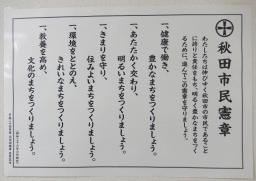 秋田市民憲章
わたしたちは伸びゆく秋田市の市民であること
に誇りと責任をもち、明るく豊かなまちをつ
くるために、進んでこの憲章を守りましょう。
一、健康で働き、
豊かなまちをつくりましょう。
一、あたたかく交わり、
明るいまちをつくりましょう。
一、きまりを守り、
住みよいまちをつくりましょう。
一、環境をととのえ、
きれいなまちをつくりましょう。
一、教養を高め、
文化のまちをつくりましょう。